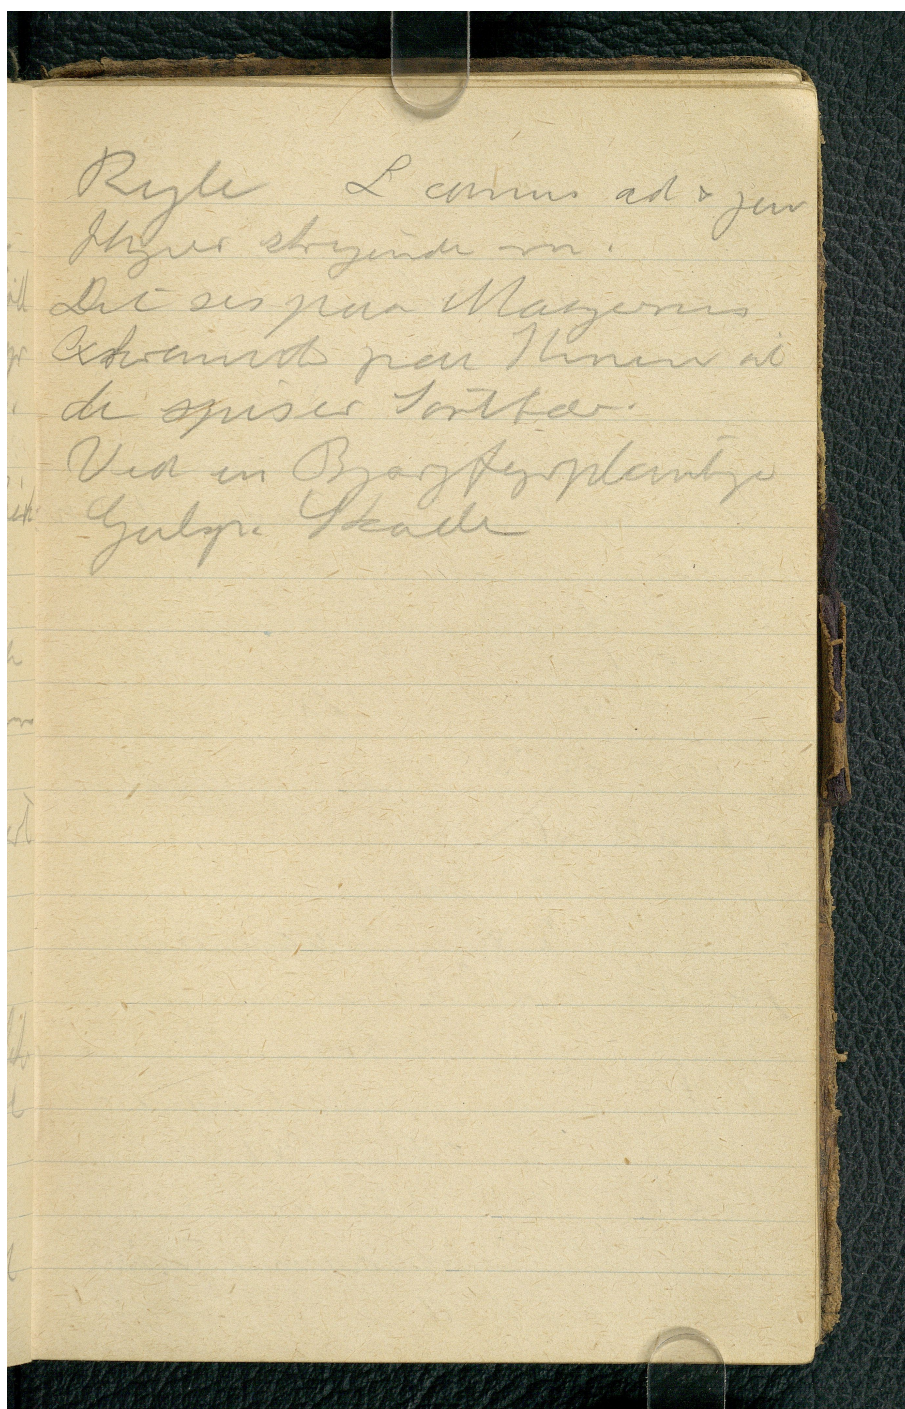 Ryle L canus ad & juv
Thyer strejfende om.
Det ses paa Maagernes
Exkrementer paa Himmen at
de spiser Sortbær.
Ved en Bjergfyrplantage
Gulsp. Skade